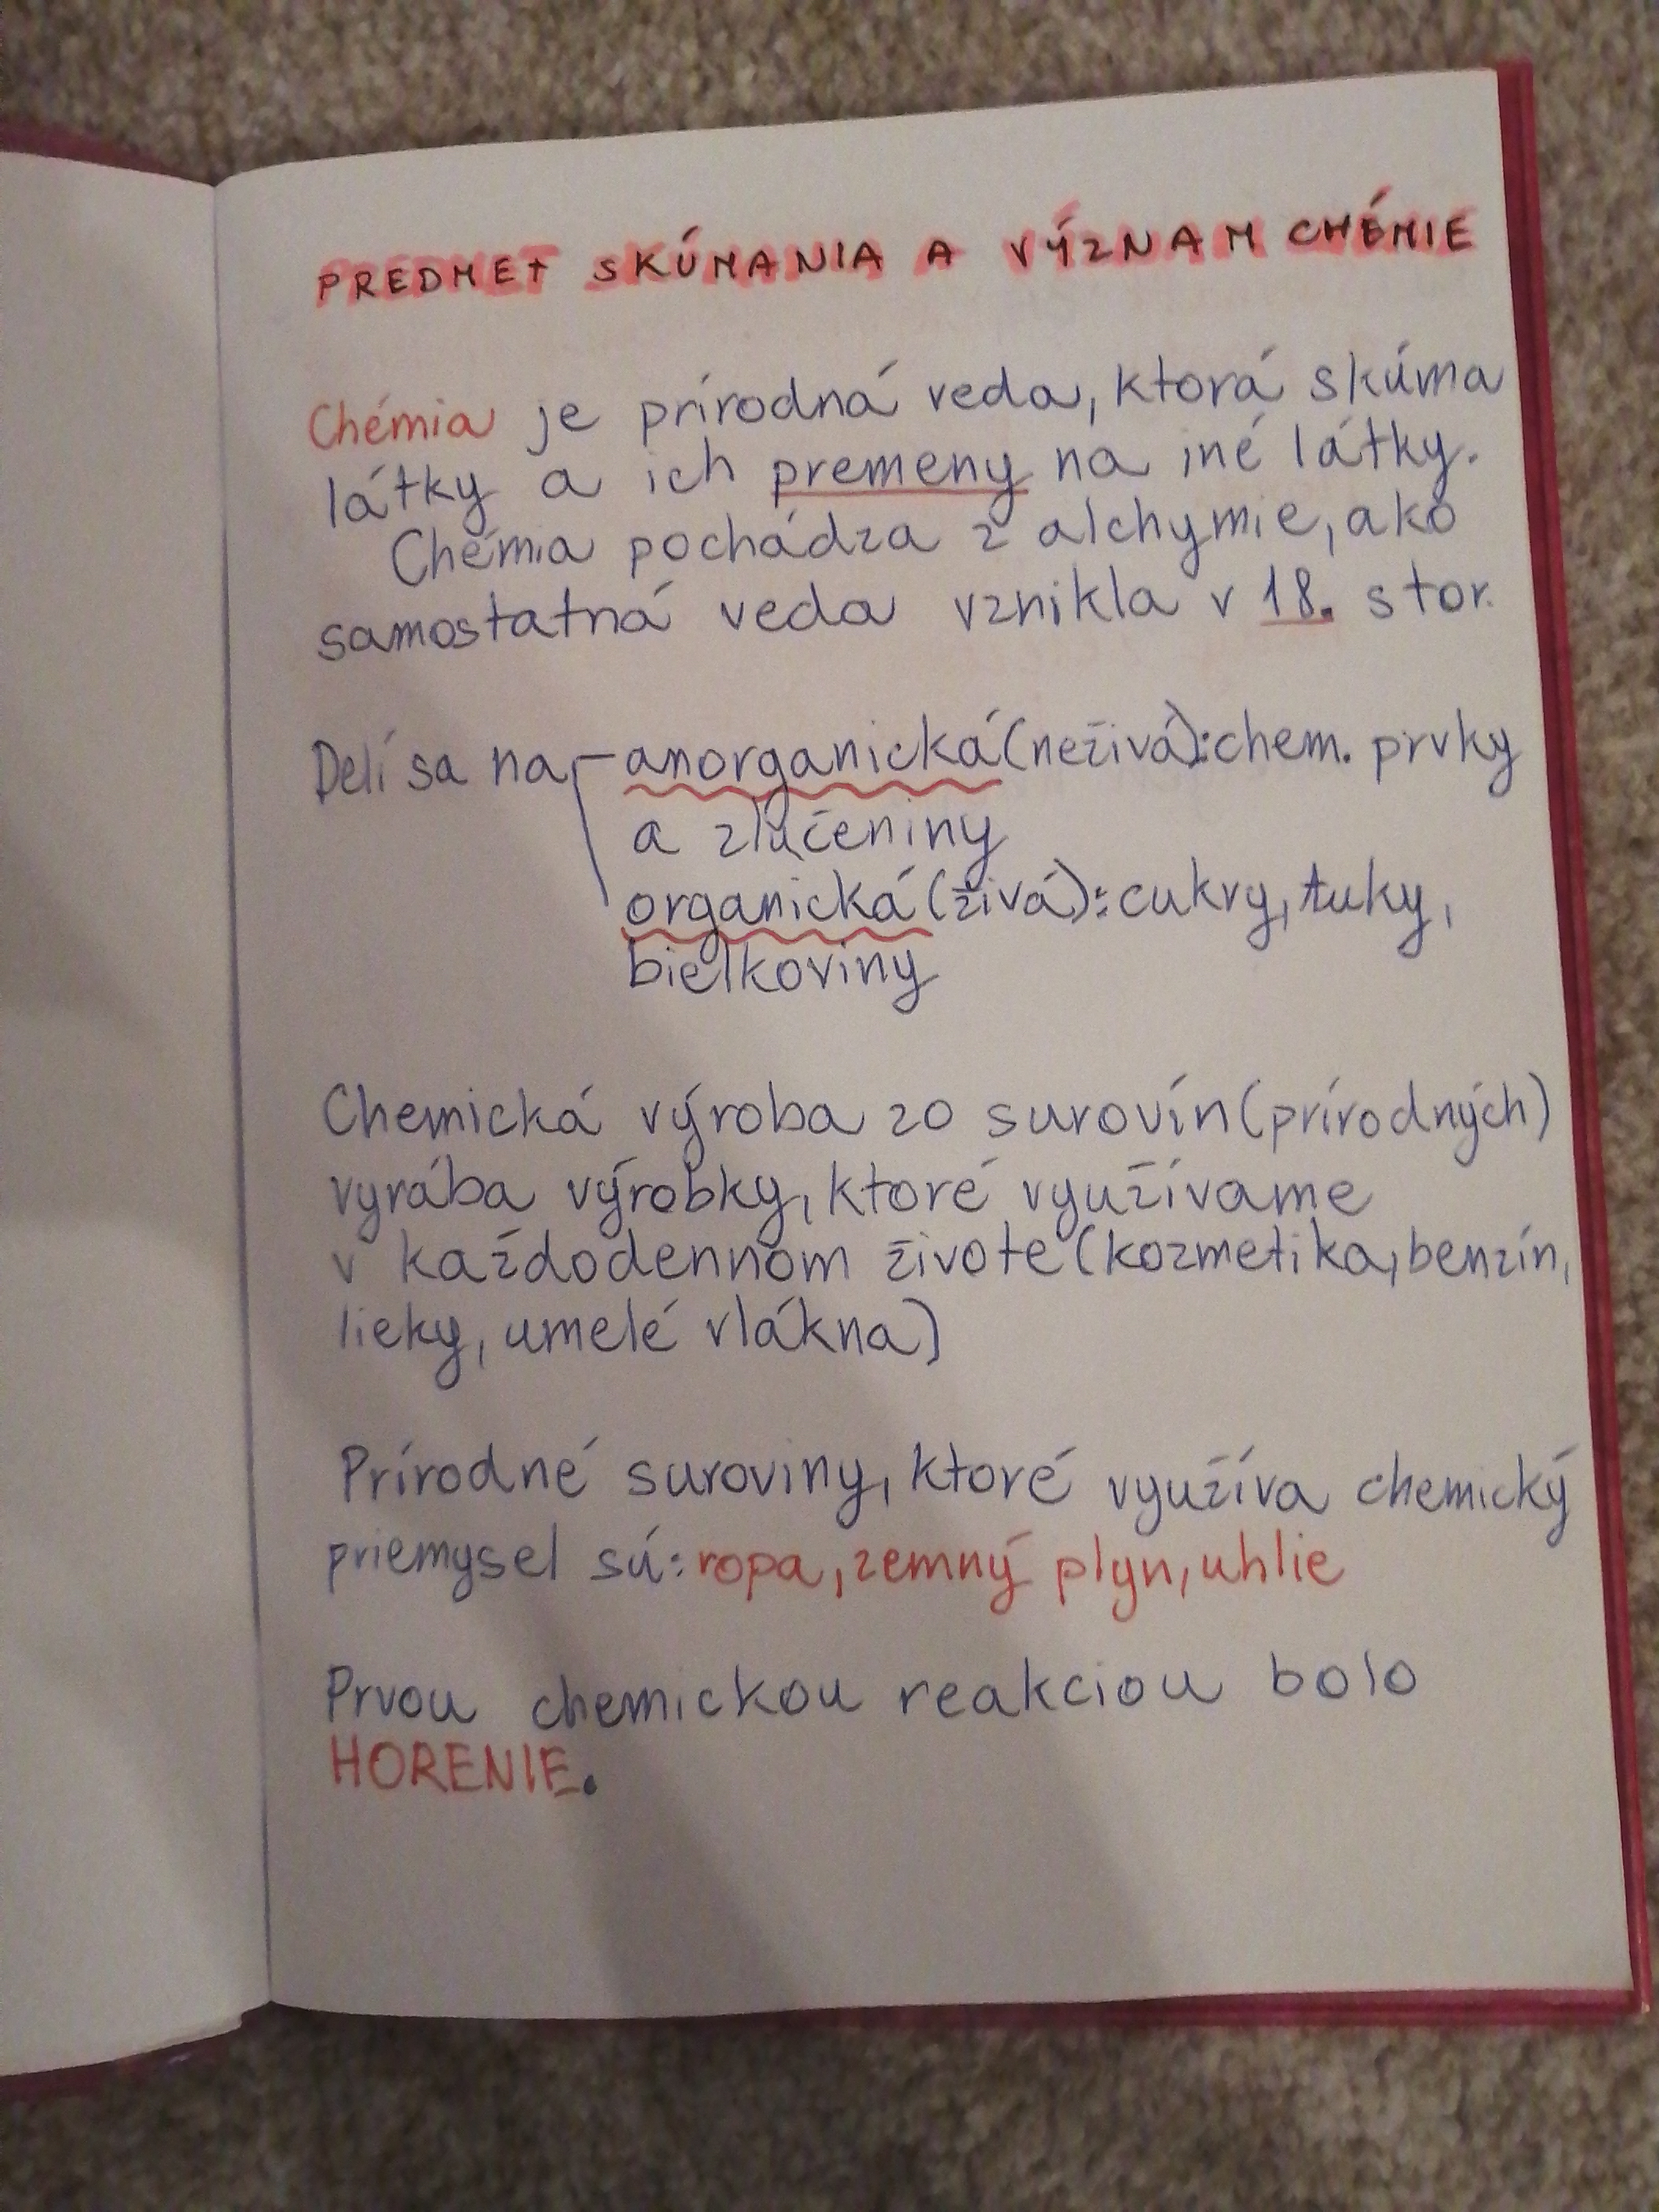 PREDMET SKÚMANIA A VÝZNAM CHÉMIE
Chémia je prírodná veda, ktorá skúma
látky a ich premeny na iné látky.
Chémia pochádza z alchymie, ako
samostatná veda vznikla v 18. stor.
Delí sa na anorganická (neživá): chem. prvky
a zlúčeniny
organická (živá): cukry, tuky,
bielkoviny
Chemická výroba zo surovín (prírodných)
vyrába výrobky, ktoré využívame
v každodennom živote (kozmetika, benzín,
lieky, umelé vlákna)
Prírodné suroviny, ktoré využíva chemický
priemysel sú: ropa, zemný plyn, uhlie
Prvou chemickou reakciou bolo
HORENIE.